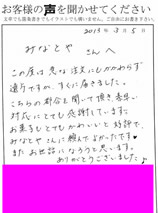 お客様の声を聞かせてください
文章でも箇条書きでもイラストでも構いません。ご自由にお書き下さい。
2013年 3月 5日
みなとや さんへ
この度は急な注文にもかかわらず
遠方ですが、すぐに届きました。
こちらの都合を聞いて頂き、素早い
対応にとても感謝しています。
お菓子もとてもかわいいと好評で、
みなとやさんに頼んでよかったです♥
またお世話になろうと思います。
ありがとうございました♪